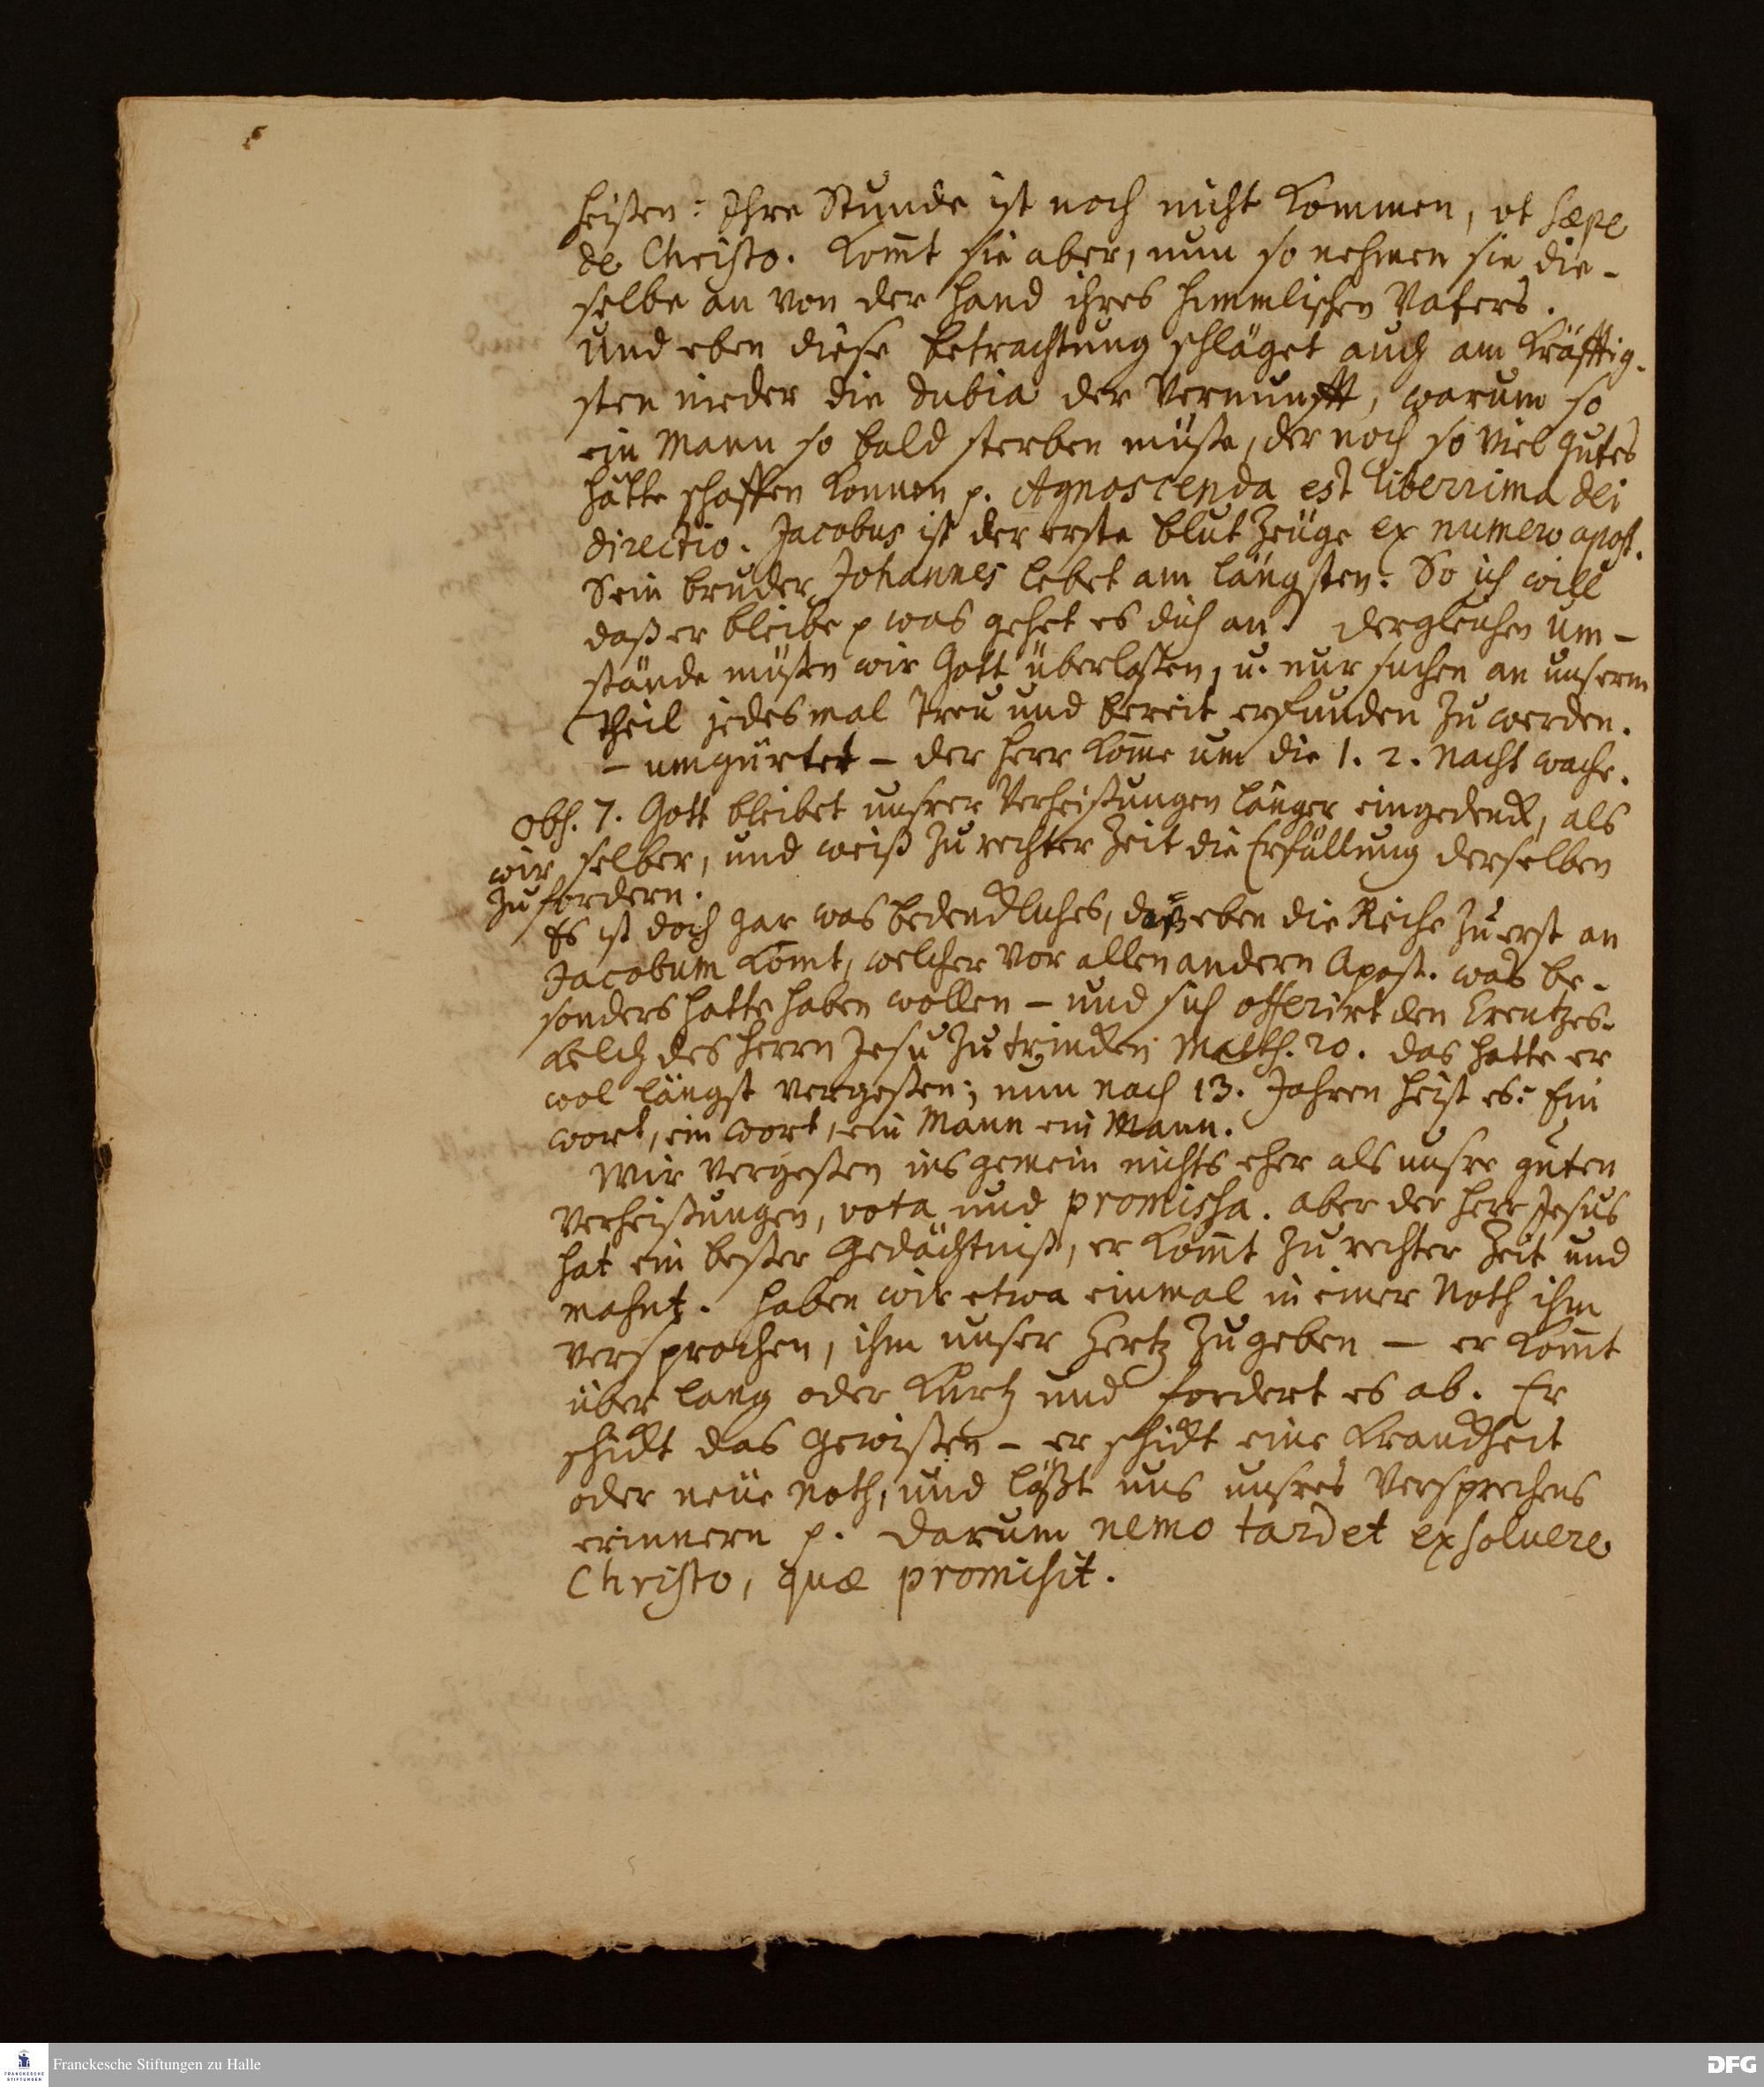 heißen: Ihre Stunde ist noch nicht kommen, ut sæpe
de Christo. Komt sie aber, nun so nehmen sie die-
selbe an von der Hand ihres himmlischen Vaters.
Und eben diese Betrachtung schläget auch am kräfftig-
sten nieder die dubia der Vernunfft, warum so
ein Mann so bald sterben müße, der noch so viel gutes
hätte schaffen konnen p. Agnoscenda est liberrima dei
directio. Jacobus ist der erste Blut Zeuge ex numero apost.
Sein Bruder Johannes lebet am längsten: So ich will
daß er bleibe p was gehet es dich an. dergleichen Um-
stände müßen wir Gott überlaßen, u. nur suchen an unserm
theil jedesmal treu und bereit erfunden zu werden.
– umgürtet – der Herr kome um die 1. 2. Nacht wache.
Obs. 7. Gott bleibet unsrer Verheißungen länger eingedenck, als
wir selber, und weiß zu rechter Zeit die Erfüllung derselben
zu fordern.
Es ist doch gar was bedenckliches, daß eben die Reihe zu erst an
Jacobum komt, welcher vor allen andern Apost. was be-
sonders hatte haben wollen – und sich offerirt den Creutzes-
kelch des Herrn Jesu zu trincken Matth. 20. das hatte er
wol längst vergeßen; nun nach 13. Jahren heist es: Ein
wort, ein wort, ein Mann ein Mann.
Wir vergeßen ins gemein nichts eher als unsre guten
Verheißungen, vota und promissa. aber der Herr Jesus
hat ein beßer Gedächtniß, er komt zu rechter Zeit und
mahnt. Haben wir etwa einmal in einer Noth ihm
versprochen, ihm unser Hertz zu geben – er komt
über lang oder kurtz und fordert es ab. Er
schickt das Gewißen – er schickt eine Kranckheit
oder neue Noth, und läßt uns unsres Versprechens
erinnern p. Darum nemo tardet exsolvere
Christo, quæ promisit.
Franckesche Stiftungen zu Halle
FRANCKESCHE
STIFTUNGEN
DFG